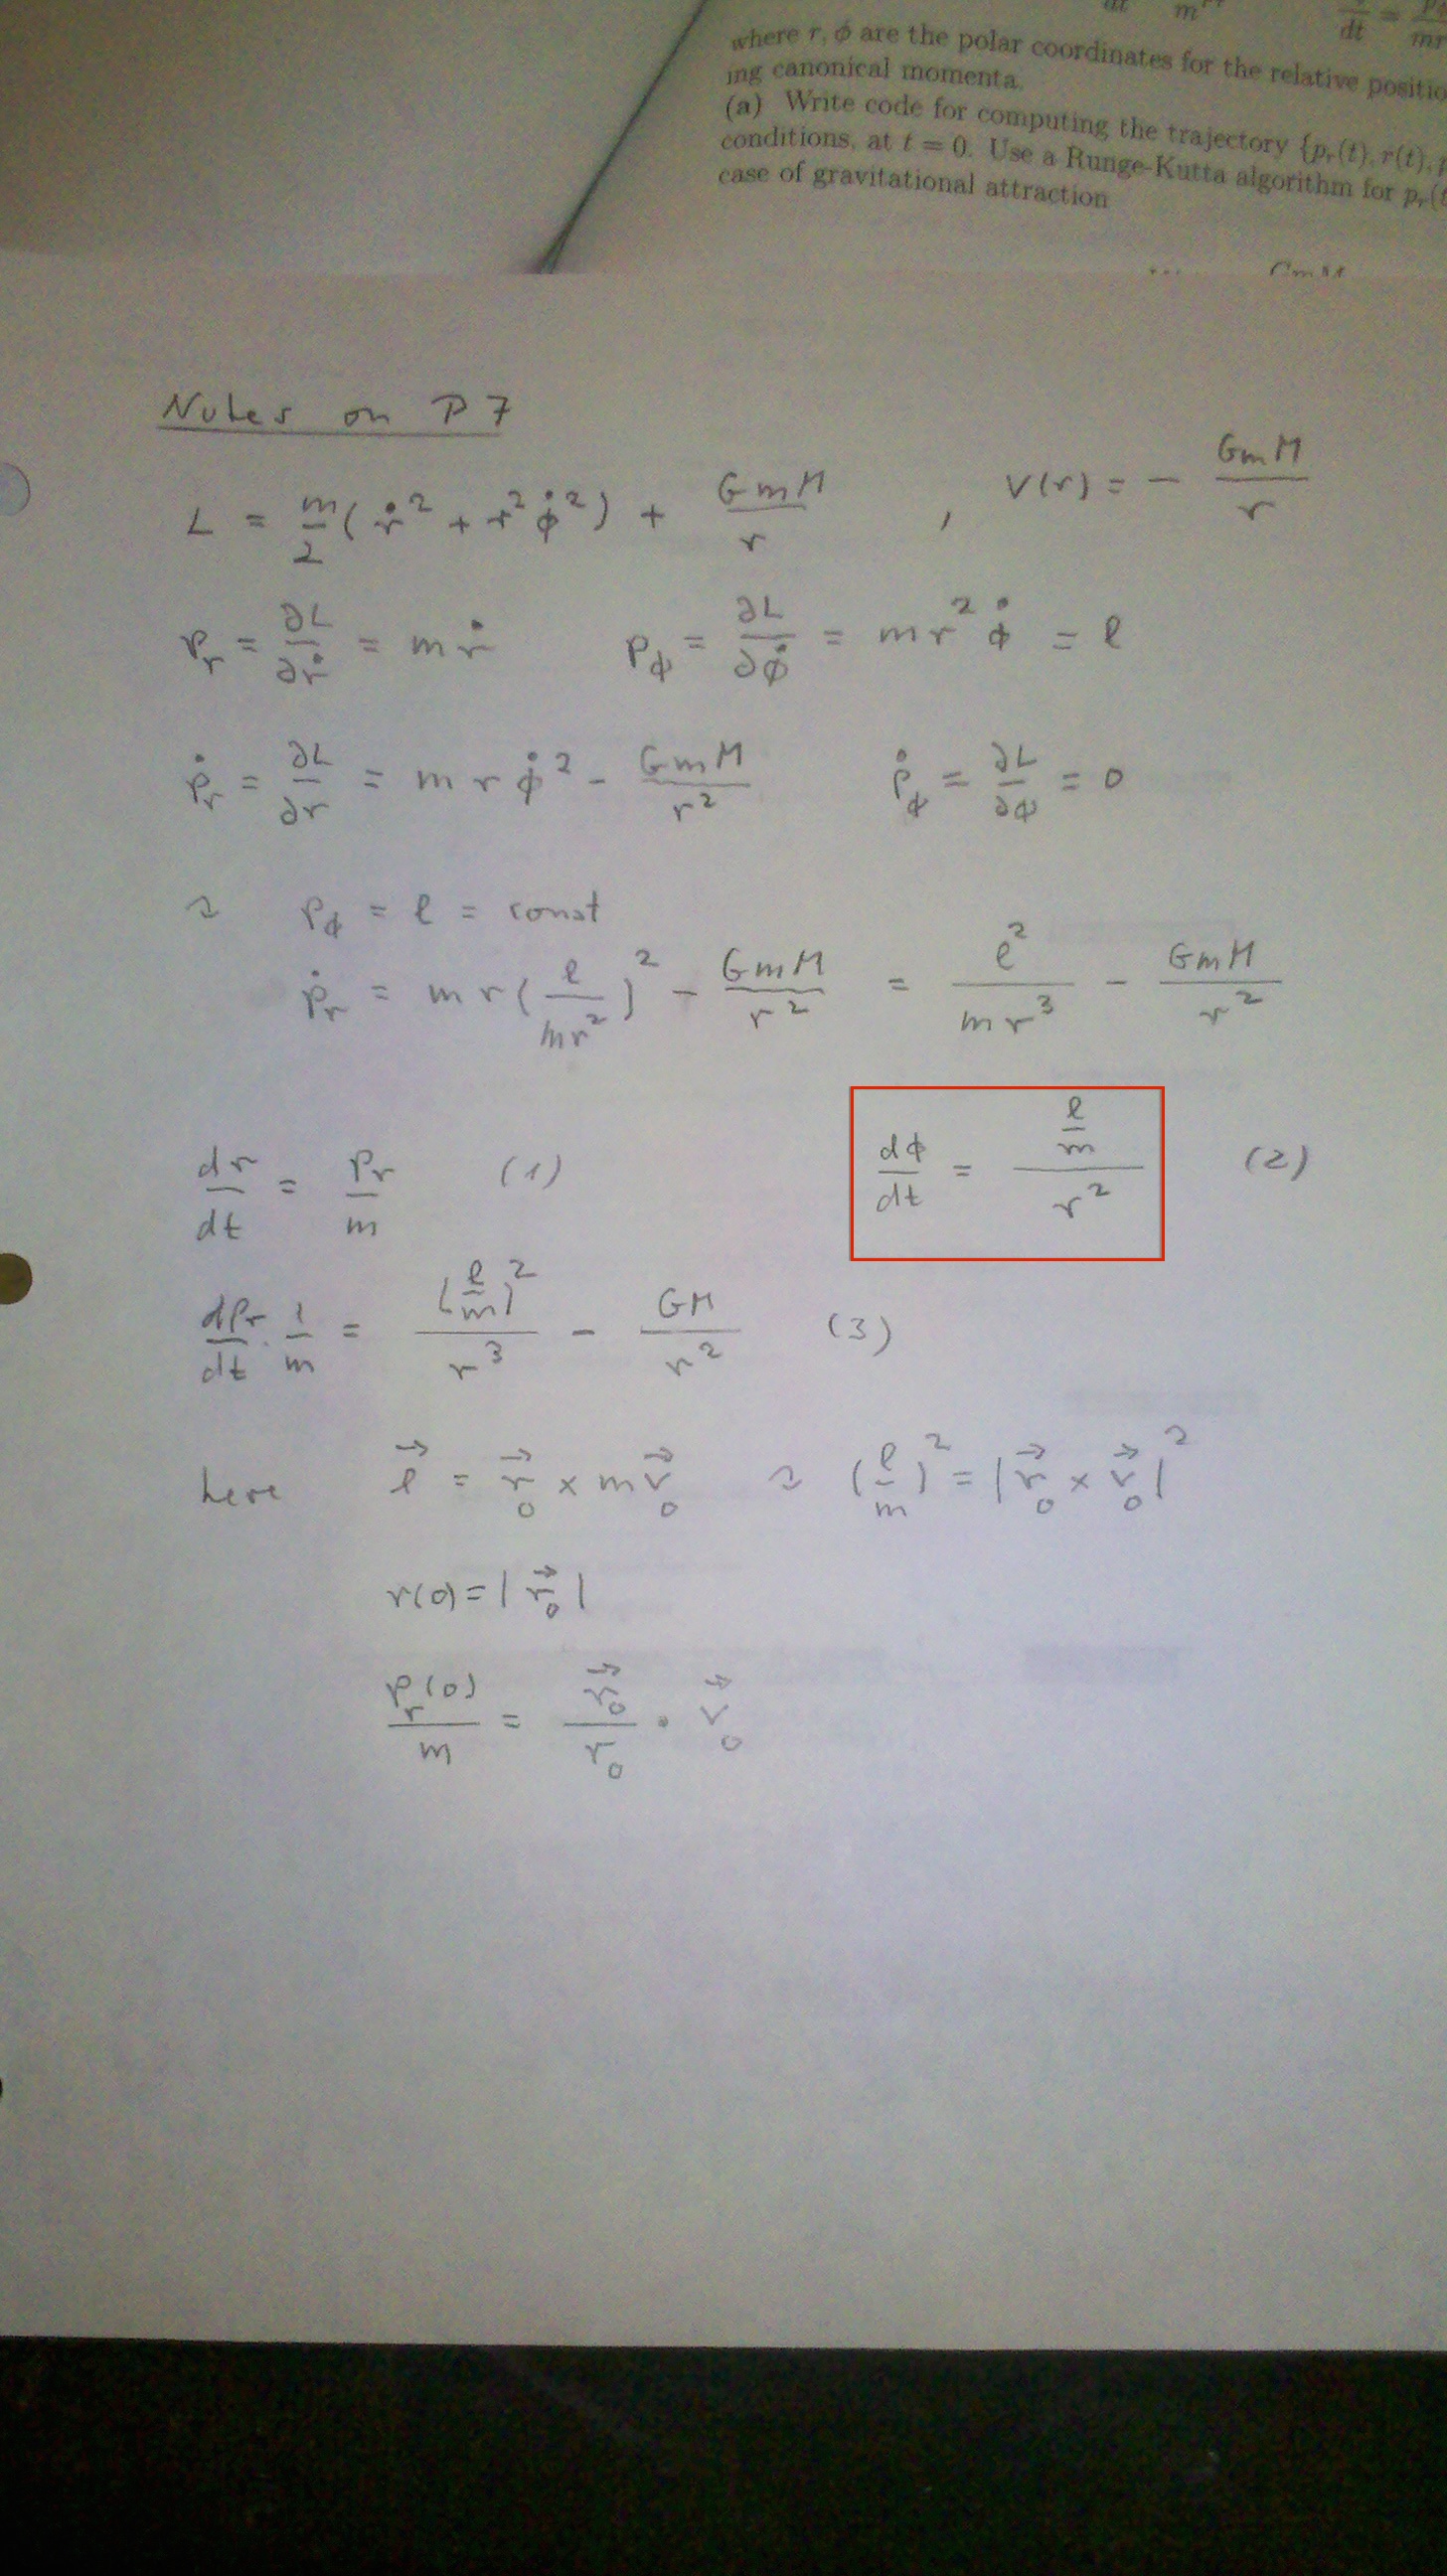 dt m dt = mr
where r, φ are the polar coordinates for the relative
ing canonical momenta.
(a) Write code for computing the trajectory {pᵣ(t), r(t),
conditions, at t = 0. Use a Runge-Kutta algorithm for pᵣ(t
case of gravitational attraction
GmM
Notes on P7
L = m/2 (ṙ² + r²φ̇²) + GmM/r , V(r) = - GmM/r
pᵣ = ∂L/∂ṙ = mṙ p_φ = ∂L/∂φ̇ = mr²φ̇ = ℓ
ṗᵣ = ∂L/∂r = m r φ̇² - GmM/r² ṗ_φ = ∂L/∂φ = 0
p_φ = ℓ = const
ṗᵣ = m r (ℓ/mr²)² - GmM/r² = ℓ²/mr³ - GmM/r²
dr/dt = pᵣ/m (1) dφ/dt = (ℓ/m)/r² (2)
dpᵣ/dt · 1/m = (ℓ/m)²/r³ - GM/r² (3)
here ℓ⃗ = r⃗₀ × m v⃗₀ (ℓ/m)² = |r⃗₀ × v⃗₀|²
r(0) = |r⃗₀|
pᵣ(0)/m = r⃗₀/r₀ · v⃗₀